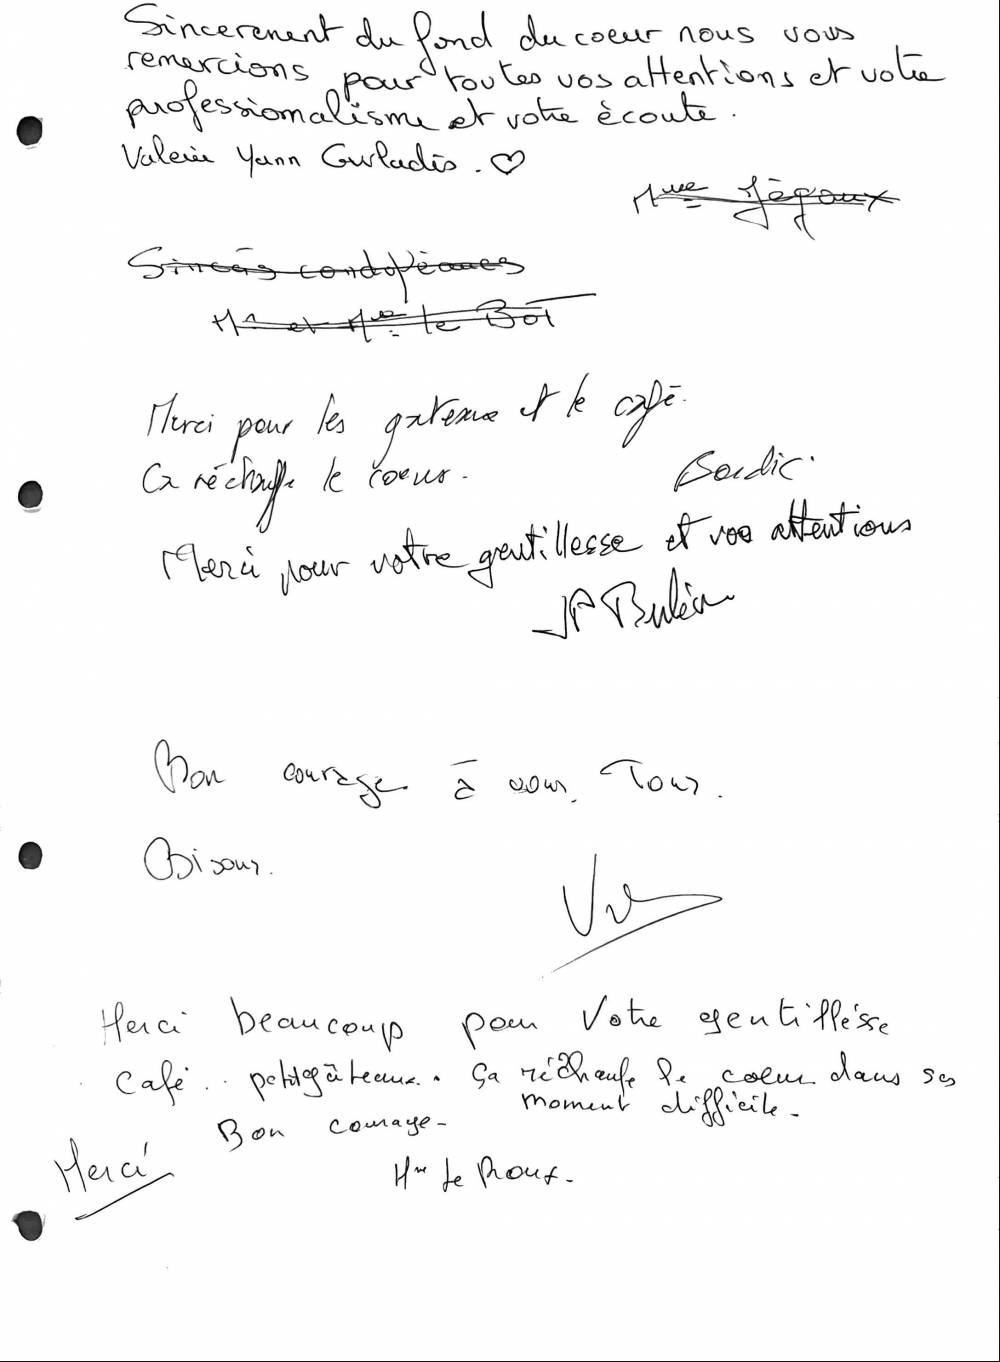 Sincerement du fond du coeur nous vous
remercions pour toutes vos attentions et votre
professionnalisme et votre écoute.
Valerie Yann Gwladis. ♡
Mme Jégoux
Sincères condoléances
Mr et Mme le Bot
Merci pour les gateaux et le café.
Ca réchauffe le coeur.
Merci pour votre gentillesse et vos attentions
JP
Bon courage à vous Tous.
Bisous.
Merci beaucoup pour votre gentillésse
Café.. petits gâteaux. Ça réchaufe le coeur dans ses
moment difficile-
Bon courage-
Merci
Mme Le Roux.